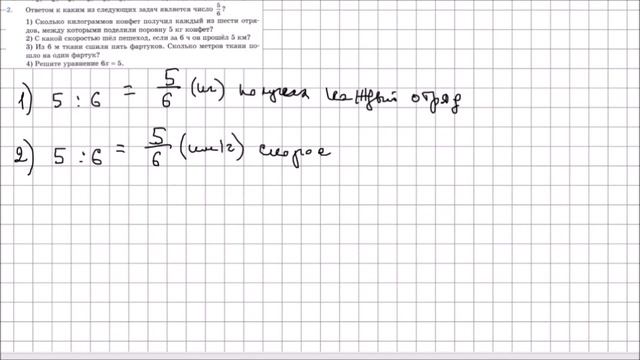 2. Ответом к каким из следующих задач является число 5/6?
1) Сколько килограммов конфет получил каждый из шести отря-
дов, между которыми поделили поровну 5 кг конфет?
2) С какой скоростью шёл пешеход, если за 6 ч он прошёл 5 км?
3) Из 6 м ткани сшили пять фартуков. Сколько метров ткани по-
шло на один фартук?
4) Решите уравнение 6x = 5.
1) 5 : 6 = 5/6 (кг) получил каждый отряд
2) 5 : 6 = 5/6 (км/ч) скорос